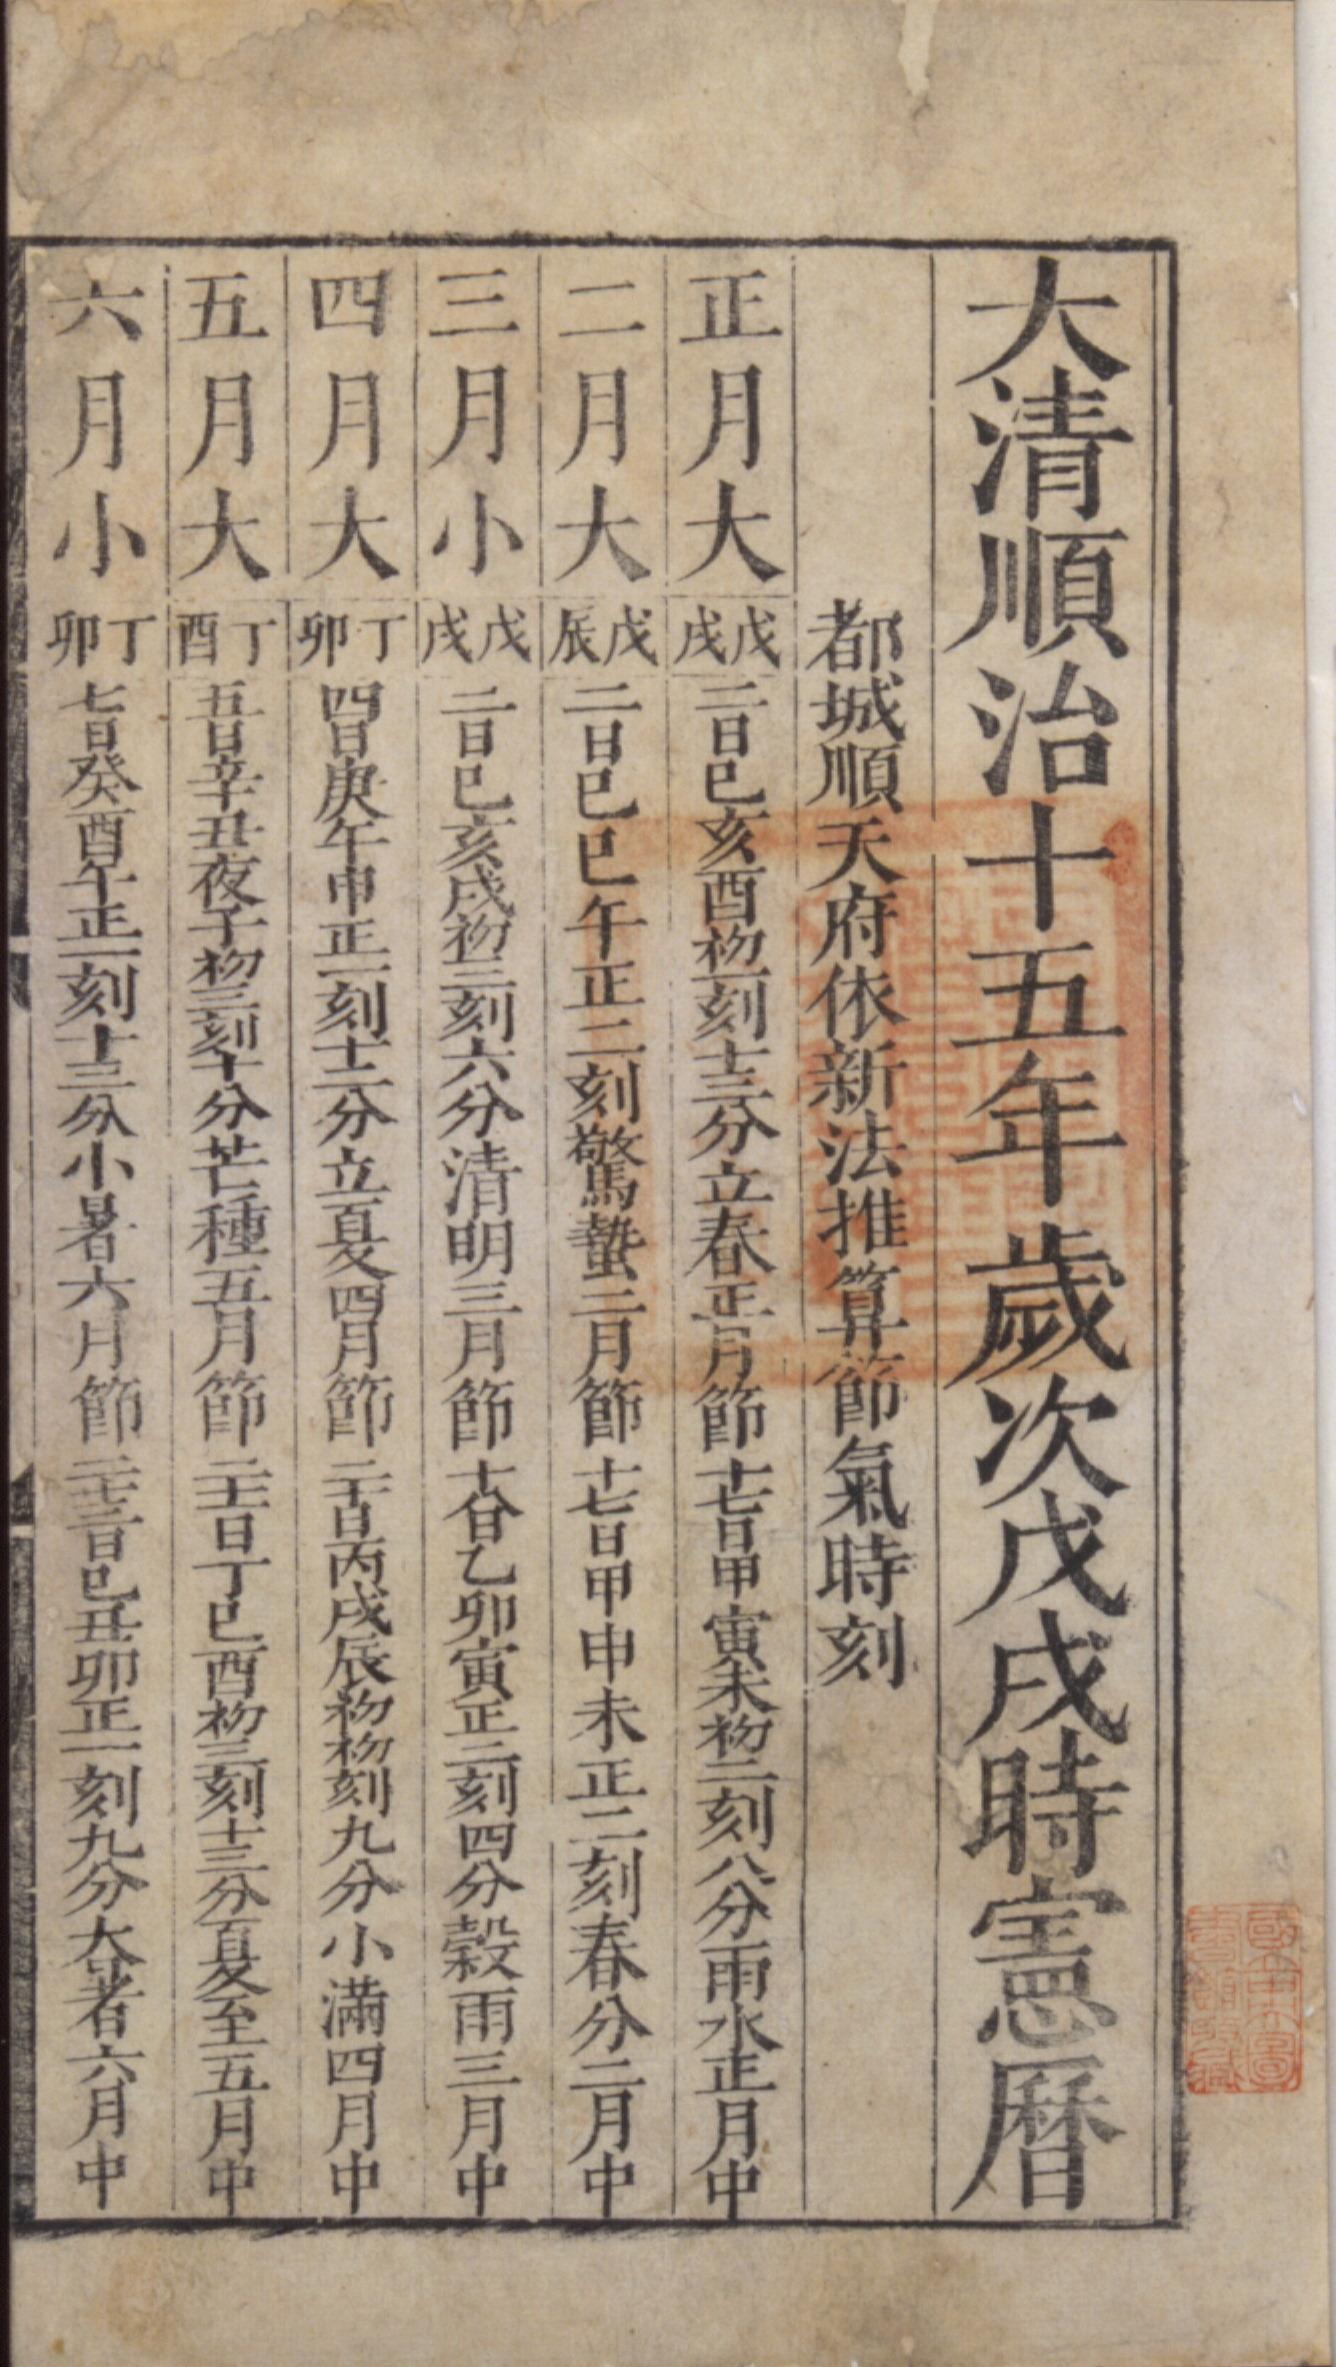 大清順治十五年歲次戊戌時憲曆
都城順天府依新法推算節氣時刻
正月大 戊戌 二日己亥酉初一刻十三分立春正月節 十七日甲寅未初二刻八分雨水正月中
二月大 戊辰 二日己巳午正二刻驚蟄二月節 十七日甲申未正二刻春分二月中
三月小 戊戌 二日己亥戌初三刻六分清明三月節 十八日乙卯寅正二刻四分穀雨三月中
四月大 丁卯 四日庚午申正一刻十二分立夏四月節 二十日丙戌辰初初刻九分小滿四月中
五月大 丁酉 五日辛丑夜子初三刻十分芒種五月節 二十一日丁巳酉初三刻十三分夏至五月中
六月小 丁卯 七日癸酉午正一刻十三分小暑六月節 二十三日己丑卯正一刻九分大暑六月中
國立中央圖
書館收藏